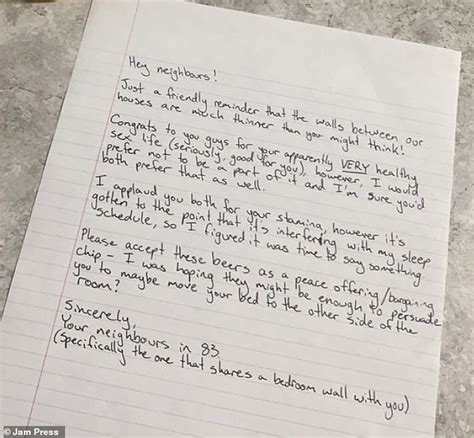 Hey neighbours!
Just a friendly reminder that the walls between our
houses are much thinner than you might think!
Congrats to you guys for your apparently VERY healthy
sex life (seriously, good for you), however, I would
prefer not to be a part of it and I'm sure you'd
both prefer that as well.
I applaud you both for your stamina, however it's
gotten to the point that it's interfering with my sleep
schedule, so I figured it was time to say something
Please accept these beers as a peace offering/bargaining
chip - I was hoping they might be enough to persuade
you to maybe move your bed to the other side of the
room?
Sincerely,
Your neighbours in 83
(specifically the one that shares a bedroom wall with you)
© Jam Press